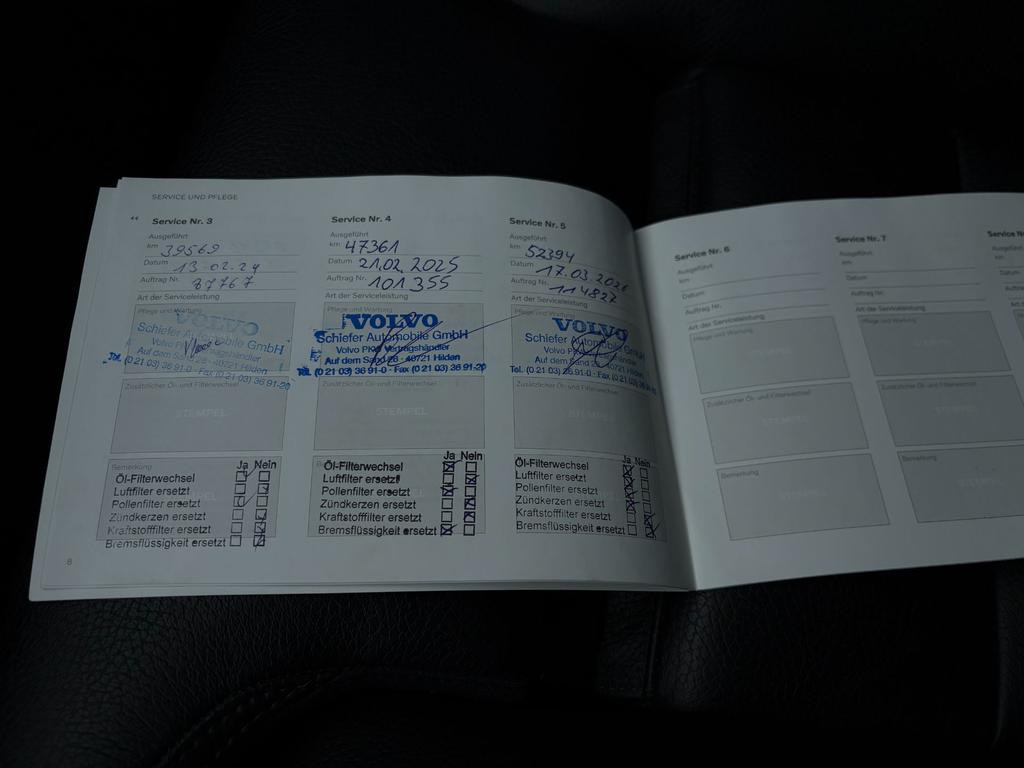 SERVICE UND PFLEGE
“
Service Nr. 3
Ausgeführt
km 39569
Datum 13 02.24
Auftrag Nr. 87767
Art der Serviceleistung
Pflege und Wartung
VOLVO
Schiefer Automobile GmbH
Volvo Vertragshändler
Auf dem Sand 28 · 40721 Hilden
Tel. (0 21 03) 36 91-0 · Fax (0 21 03) 36 91-20
Zusätzlicher Öl- und Filterwechsel
STEMPEL
Bemerkung
Ja Nein
Öl-Filterwechsel
Luftfilter ersetzt
Pollenfilter ersetzt
Zündkerzen ersetzt
Kraftstofffilter ersetzt
Bremsflüssigkeit ersetzt
8
Service Nr. 4
Ausgeführt
km 47361
Datum 21.02.2025
Auftrag Nr. 101 355
Art der Serviceleistung
Pflege und Wartung
VOLVO
Schiefer Automobile GmbH
Volvo Vertragshändler
Auf dem Sand 28 · 40721 Hilden
Tel. (0 21 03) 36 91-0 · Fax (0 21 03) 36 91-20
Zusätzlicher Öl- und Filterwechsel
STEMPEL
Ja Nein
Öl-Filterwechsel
Luftfilter ersetzt
Pollenfilter ersetzt
Zündkerzen ersetzt
Kraftstofffilter ersetzt
Bremsflüssigkeit ersetzt
Service Nr. 5
Ausgeführt
km 52394
Datum 17.03.2026
Auftrag Nr. 114827
Art der Serviceleistung
Pflege und Wartung
VOLVO
Schiefer Automobile GmbH
Volvo
Auf dem Sand 28 · 40721 Hilden
Tel. (0 21 03) 36 91-0 · Fax (0 21 03) 36 91-20
Zusätzlicher Öl- und Filterwechsel
STEMPEL
Ja Nein
Öl-Filterwechsel
Luftfilter ersetzt
Pollenfilter ersetzt
Zündkerzen ersetzt
Kraftstofffilter ersetzt
Bremsflüssigkeit ersetzt
Service Nr. 6
Ausgeführt
km
Datum
Auftrag Nr.
Art der Serviceleistung
Pflege und Wartung
Zusätzlicher Öl- und Filterwechsel
STEMPEL
Bemerkung
Service Nr. 7
Ausgeführt
km
Datum
Auftrag Nr.
Art der Serviceleistung
Pflege und Wartung
Zusätzlicher Öl- und Filterwechsel
STEMPEL
Bemerkung
Service
Ausgeführt
km
Datum
Auftrag
Art der